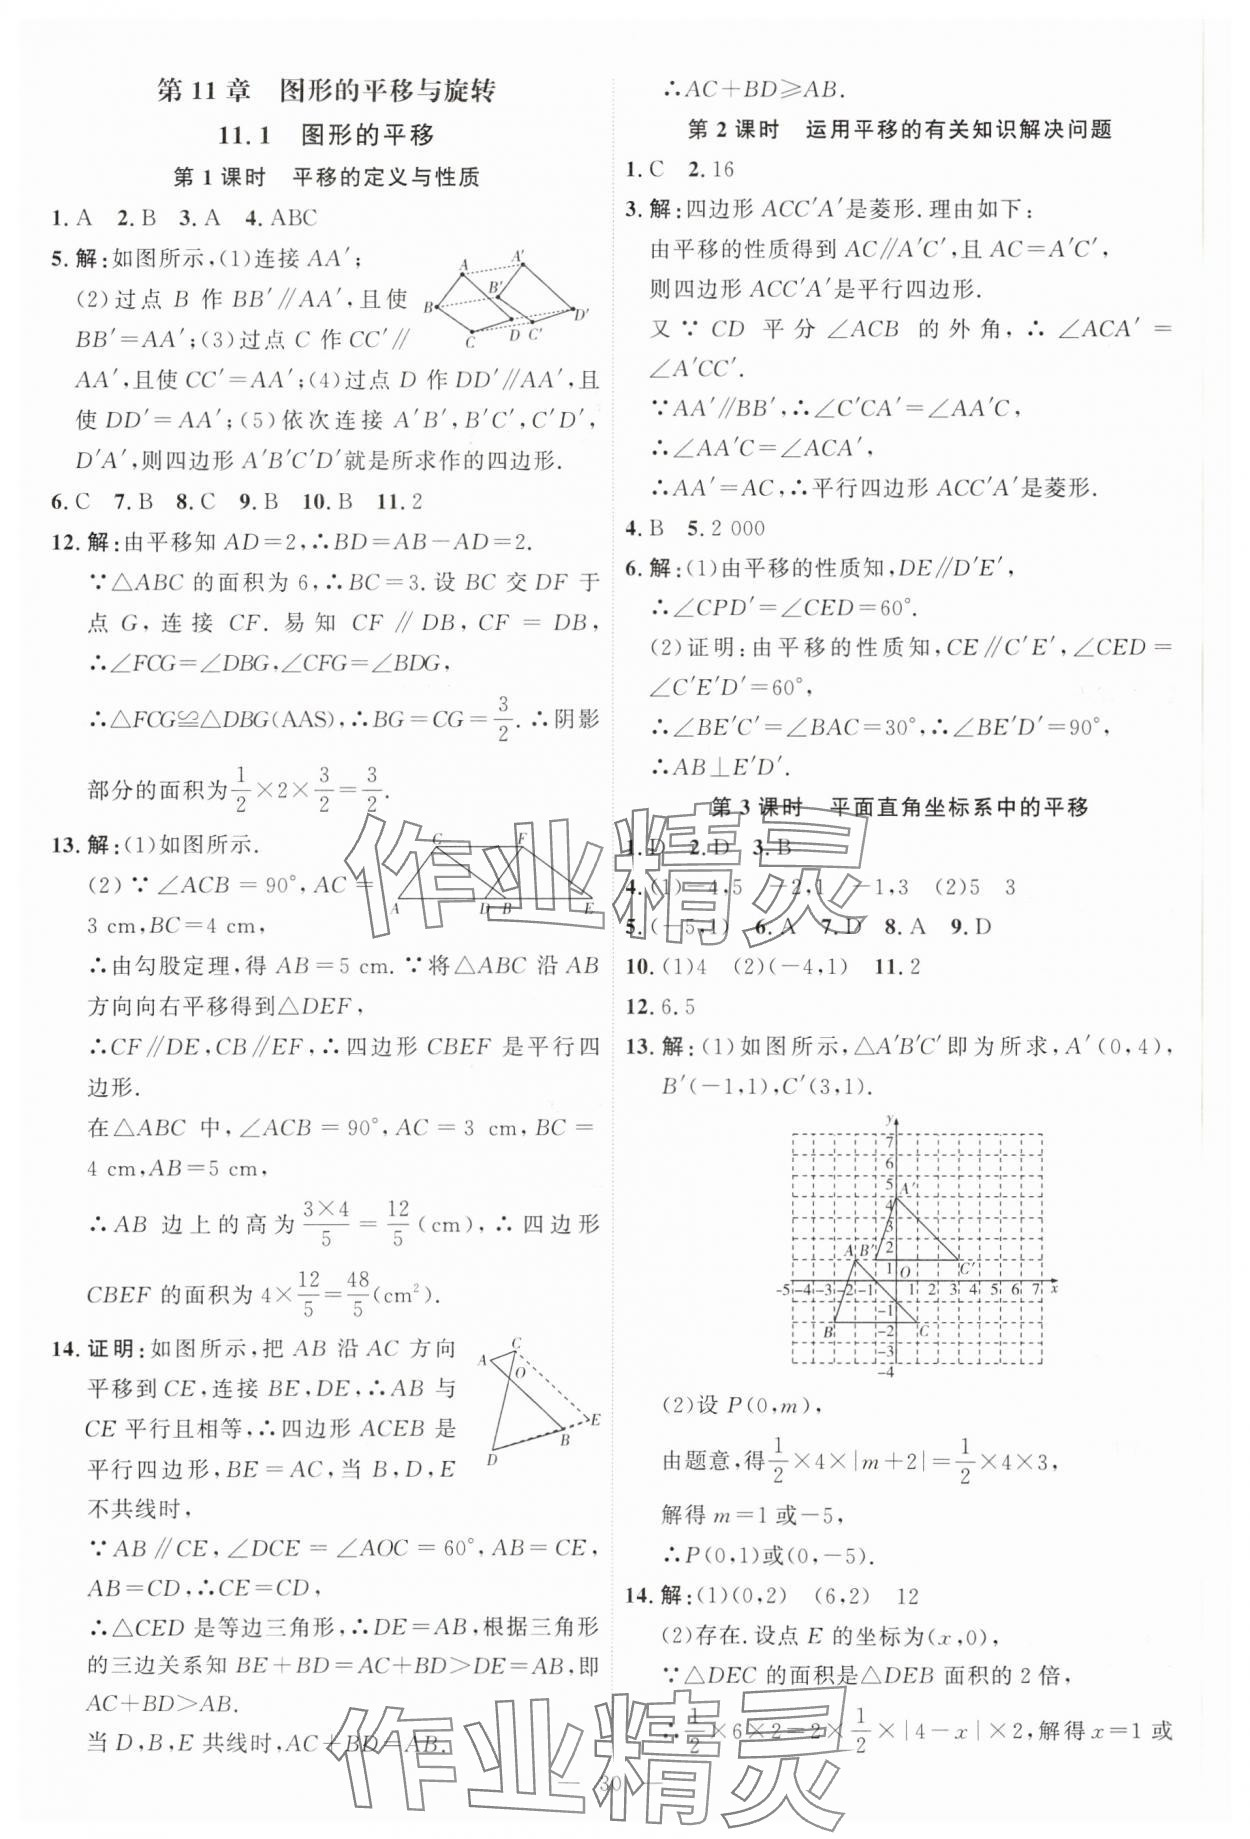 第11章 图形的平移与旋转
11.1 图形的平移
第1课时 平移的定义与性质
1. A 2. B 3. A 4. ABC
5. 解:如图所示,(1)连接 AA′;
(2)过点 B 作 BB′∥AA′,且使
BB′=AA′;(3)过点 C 作 CC′∥
AA′,且使 CC′=AA′;(4)过点 D 作 DD′∥AA′,且
使 DD′=AA′;(5)依次连接 A′B′,B′C′,C′D′,
D′A′,则四边形 A′B′C′D′就是所求作的四边形.
A A′ B B′ C D C′ D′
6. C 7. B 8. C 9. B 10. B 11. 2
12. 解:由平移知 AD=2,∴BD=AB-AD=2.
∵△ABC 的面积为 6,∴BC=3.设 BC 交 DF 于
点 G,连接 CF. 易知 CF∥DB,CF=DB,
∴∠FCG=∠DBG,∠CFG=∠BDG,
∴△FCG≌△DBG(AAS),∴BG=CG=3/2.∴阴影
部分的面积为1/2×2×3/2=3/2.
13. 解:(1)如图所示.
(2)∵∠ACB=90°,AC=
3 cm,BC=4 cm,
C F A D B E
∴由勾股定理,得 AB=5 cm.∵将△ABC 沿 AB
方向向右平移得到△DEF,
∴CF∥DE,CB∥EF,∴四边形 CBEF 是平行四
边形.
在△ABC 中,∠ACB=90°,AC=3 cm,BC=
4 cm,AB=5 cm,
∴AB 边上的高为3×4/5=12/5(cm),∴四边形
CBEF 的面积为 4×12/5=48/5(cm²).
14. 证明:如图所示,把 AB 沿 AC 方向
平移到 CE,连接 BE,DE,∴AB 与
CE 平行且相等,∴四边形 ACEB 是
平行四边形,BE=AC,当 B,D,E
不共线时,
A C O E B D
∵AB∥CE,∠DCE=∠AOC=60°,AB=CE,
AB=CD,∴CE=CD,
∴△CED 是等边三角形,∴DE=AB,根据三角形
的三边关系知 BE+BD=AC+BD>DE=AB,即
AC+BD>AB.
当 D,B,E 共线时,AC+BD=AB.
∴AC+BD≥AB.
第2课时 运用平移的有关知识解决问题
1. C 2. 16
3. 解:四边形 ACC′A′是菱形.理由如下:
由平移的性质得到 AC∥A′C′,且 AC=A′C′,
则四边形 ACC′A′是平行四边形.
又∵CD 平分∠ACB 的外角,∴∠ACA′=
∠A′CC′.
∵AA′∥BB′,∴∠C′CA′=∠AA′C,
∴∠AA′C=∠ACA′,
∴AA′=AC,∴平行四边形 ACC′A′是菱形.
4. B 5. 2 000
6. 解:(1)由平移的性质知,DE∥D′E′,
∴∠CPD′=∠CED=60°.
(2)证明:由平移的性质知,CE∥C′E′,∠CED=
∠C′E′D′=60°,
∴∠BE′C′=∠BAC=30°,∴∠BE′D′=90°,
∴AB⊥E′D′.
第3课时 平面直角坐标系中的平移
1. D 2. D 3. B
4. (1)-4,5 -2,1 -1,3 (2)5 3
5. (-5,1) 6. A 7. D 8. A 9. D
10. (1)4 (2)(-4,1) 11. 2
12. 6.5
13. 解:(1)如图所示,△A′B′C′即为所求,A′(0,4),
B′(-1,1),C′(3,1).
y
7
6
5
4 A′
3
2
A B′ 1 C′
O
-5-4-3-2-1 1 2 3 4 5 6 7 x
-1
B -2 C
-3
-4
(2)设 P(0,m),
由题意,得1/2×4×|m+2|=1/2×4×3,
解得 m=1 或-5,
∴P(0,1)或(0,-5).
14. 解:(1)(0,2) (6,2) 12
(2)存在.设点 E 的坐标为(x,0),
∵△DEC 的面积是△DEB 面积的 2 倍,
∴1/2×6×2=2×1/2×|4-x|×2,解得 x=1 或
— 30 —
作业精灵
作业精灵